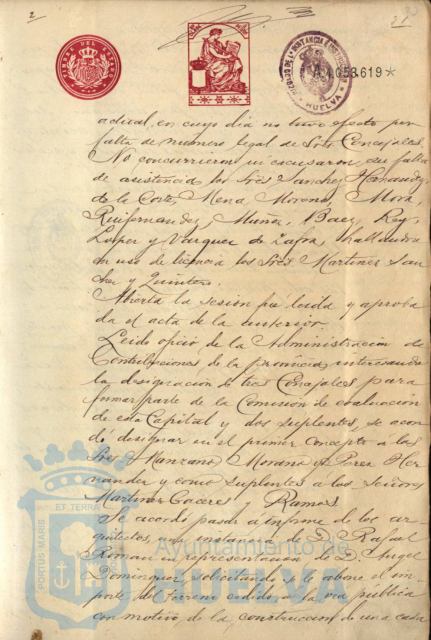 2
21
TIMBRE DEL ESTADO
HUELVA
A.4.053.619*
actual, en cuyo dia no tuvo efecto por
falta de número legal de Sres Concejales.
No concurrieron ni escusaron su falta
de asistencia los Sres Sanchez Hernandez,
de la Corte, Mena, Moreno, Mora,
Ruifernandez, Muñiz, Baez, Rey,
Lopez y Vazquez de Zafra, hallandose
en uso de licencia los Sres Martinez San
chez y Quintero.
Abierta la sesion fué leida y aproba
da el acta de la anterior.
Leido oficio de la Administracion de
Contribuciones de la provincia, interesando
la designacion de tres Concejales para
formar parte de la Comision de evaluacion
de esta Capital y dos suplentes, se acor
dó designar en el primer concepto a los
Sres Manzano, Morano y Perez Her
nandez y como suplentes a los Señores
Martinez Caceres y Ramos.
Se acordó pasar á informe de los ar
quitectos, una instancia de D. Rafael
Roman en representacion de D. Angel
Dominguez, solicitando se le abone el im
porte del terreno cedido a la via publica
con motivo de la construccion de una casa
PORTUS MARIS ET TERRAE
Ayuntamiento de
HUELVA